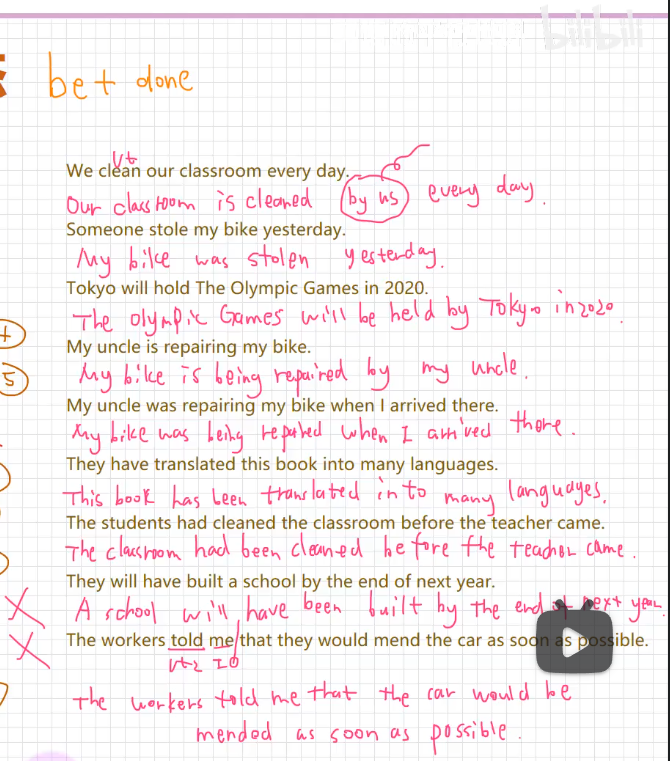 bilibili
be + done
Vt
We clean our classroom every day.
Our classroom is cleaned by us every day.
Someone stole my bike yesterday.
My bike was stolen yesterday.
Tokyo will hold The Olympic Games in 2020.
The Olympic Games will be held by Tokyo in 2020.
My uncle is repairing my bike.
My bike is being repaired by my uncle.
5
My uncle was repairing my bike when I arrived there.
My bike was being repaired when I arrived there.
They have translated this book into many languages.
This book has been translated into many languages.
The students had cleaned the classroom before the teacher came.
The classroom had been cleaned before the teacher came.
They will have built a school by the end of next year.
A school will have been built by the end of next year.
The workers told me that they would mend the car as soon as possible.
Vt2 IO
The workers told me that the car would be
mended as soon as possible.